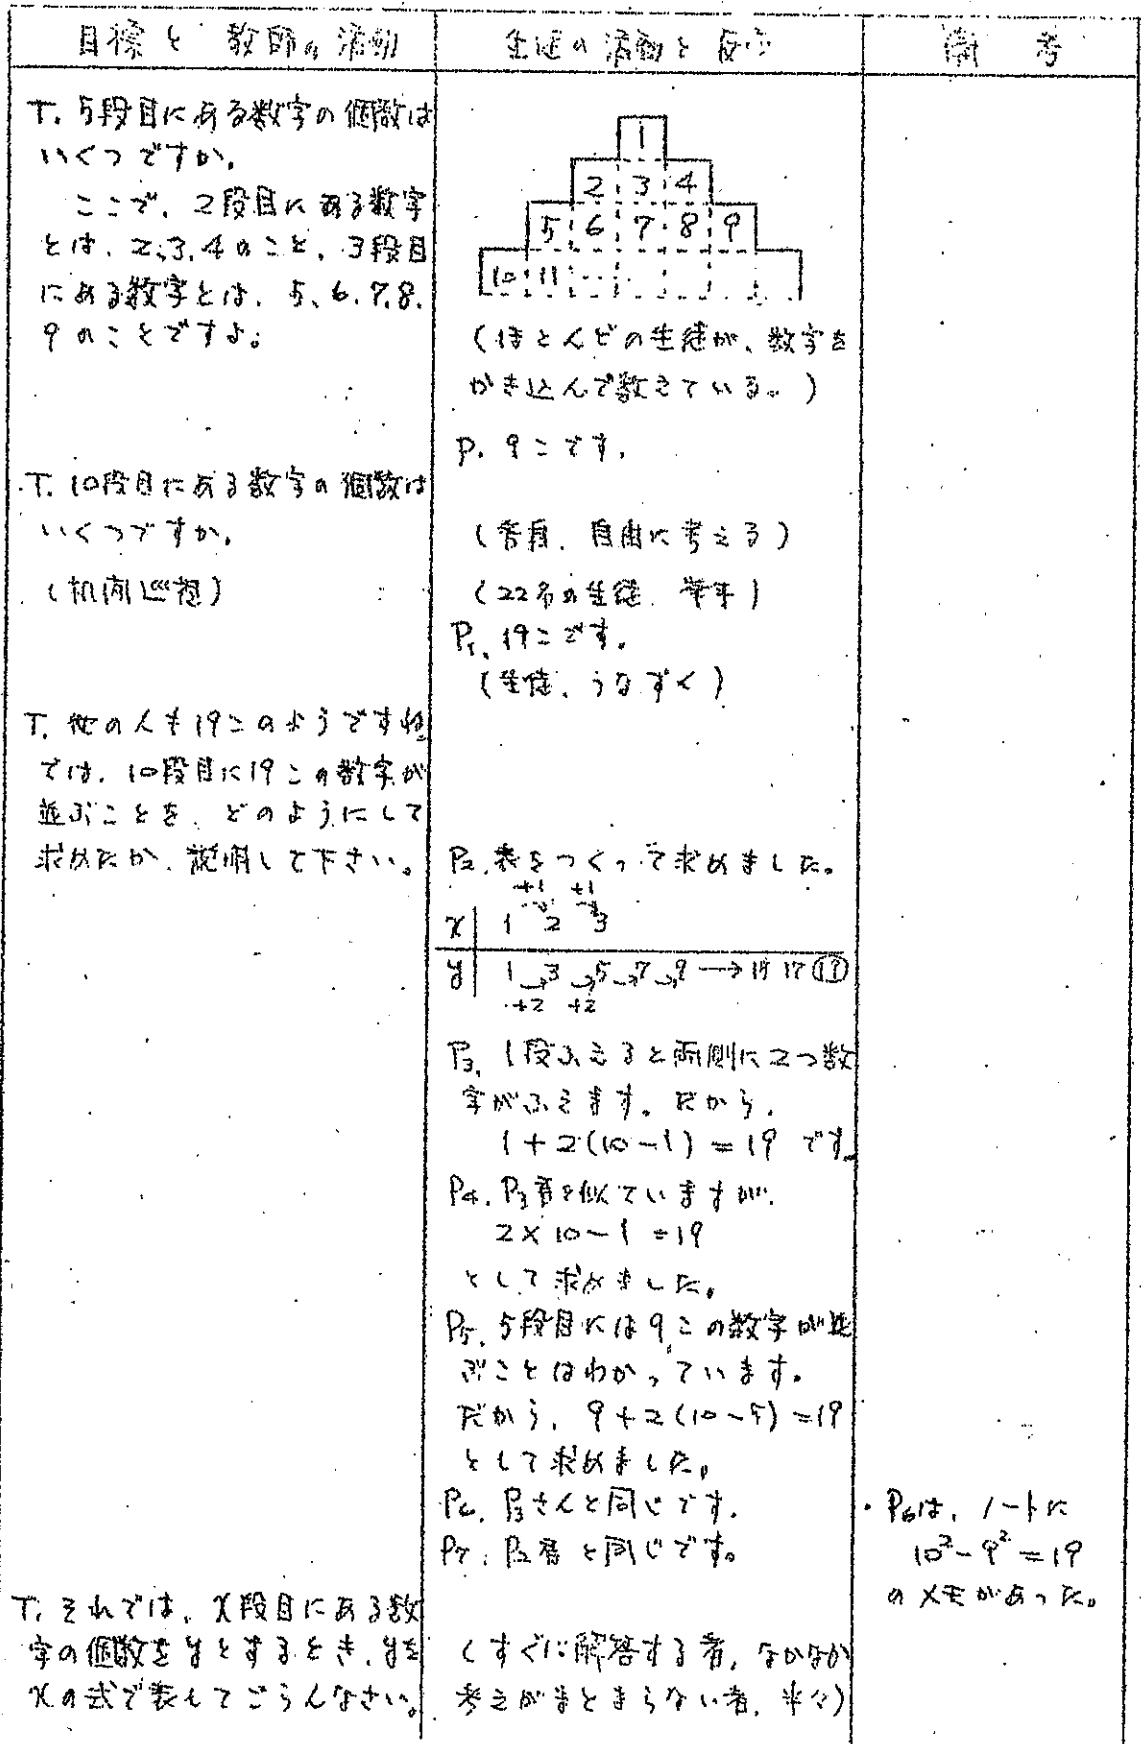 目標と 教師の活動
生徒の活動と反応
備 考
T. 5段目にある数字の個数は
いくつですか。
ここで、2段目にある数字
とは、2,3,4のこと、3段目
にある数字とは、5、6、7、8、
9のことですよ。
1
2 3 4
5 6 7 8 9
10 11 ……
(ほとんどの生徒が、数字を
かき込んで数えている。)
P. 9こです。
T. 10段目にある数字の個数は
いくつですか。
(机間巡視)
(各自、自由に考える)
(22名の生徒、挙手)
P₁. 19こです。
(生徒、うなずく)
T. 他の人も19このようですね
では、10段目に19この数字が
並ぶことを、どのようにして
求めたか、説明して下さい。
P₂. 表をつくって求めました。
+1 +1
x 1 2 3
y 1 3 5 7 9 → 15 17 ⑲
+2 +2
P₃. 1段ふえると両側に2つ数
字がふえます。だから、
1+2(10-1)=19 です。
P₄. P₃君と似ていますが、
2×10-1=19
として求めました。
P₅. 5段目には9この数字が並
ぶことはわかっています。
だから、9+2(10-5)=19
として求めました。
P₆. P₃さんと同じです。
P₇. P₂君と同じです。
・P₆は、ノートに
10²-9²=19
のメモがあった。
T. それでは、x段目にある数
字の個数をyとするとき、yを
xの式で表してごらんなさい。
(すぐに解答する者、なかなか
考えがまとまらない者、半々)